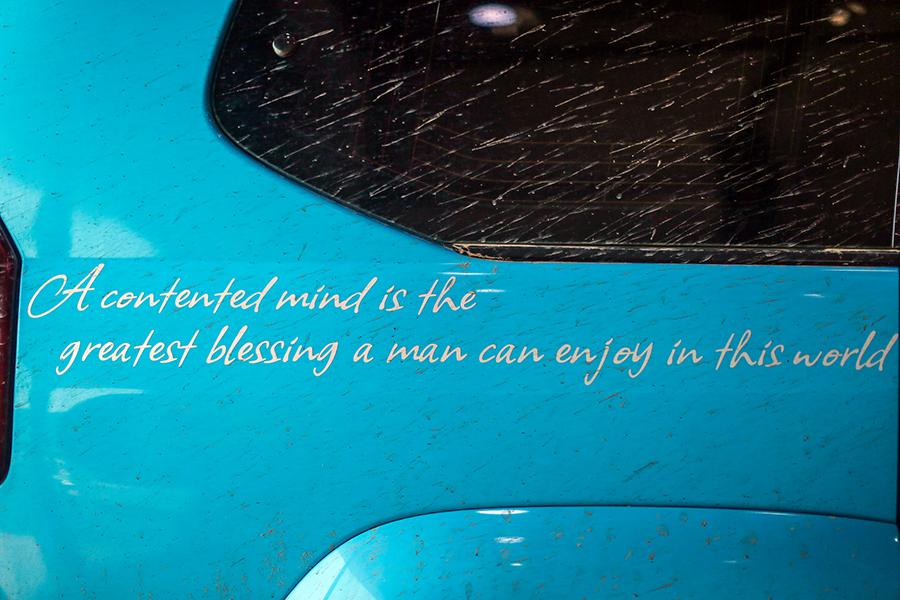 A contented mind is the
greatest blessing a man can enjoy in this world